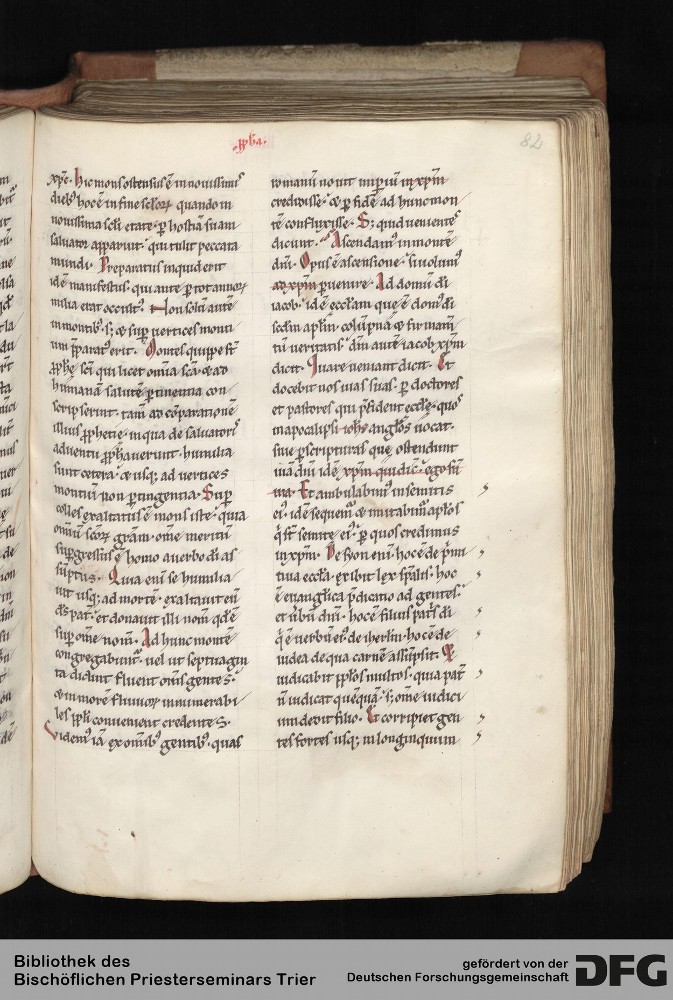 82
xp̄c. Hic mons ostensus ē in nouissimis
dieb; hoc ē in fine sc̄loꝝ quando in
nouissima sc̄li etate. ꝑ hostiā suam
saluator apparuit. qui tulit peccata
mundi. Preparatus inquid erit
idē manifestus. qui ante ꝑ tot annoꝝ
milia erat occult;. Non solū autē
in montib;. s; & suꝑ uertices monti
um p̄parat; erit. Montes quippe st̄
ꝓphe sc̄i qui licet om̄ia sc̄a & ad
humanā salutē ꝑtinentia con
scripserint. tam̄ ad cōparationē
illius ꝓphetie. in qua de saluatoris
aduentu ꝓphauerunt. humilia
sunt cetera. & usq; ad uertices
montiū non ꝑtingentia. Suꝑ
colles exaltatus ē mons iste. quia
omniū sc̄oꝝ gr̄am. om̄e meritū
suꝑgressus ē homo a uerbo dī as
sūptus. Quia enī se humilia
uit usq; ad mortē. exaltauit eū
d̄s pat̄. et donauit illi nom̄ qd̄ ē
suꝑ om̄e nom̄. Ad hunc montē
congregabunt̄. uel ut septuagin
ta dicunt fluent om̄s gentes.
& in morē fluminū innumerabi
les ppl̄i conuenient credentes.
Videm; iā ex om̄ib; gentib;. quas
romanū nouit imꝑiū in xp̄m
credidisse. & ꝑ fidē ad hunc mon
tē confluxisse. S; quid uenientes
dicunt. Ascendam; in montē
dn̄i. Opus ē ascensione. si uolum;
ad xp̄m ꝑuenire. Ad domū dī
iacob. idē eccl̄am que ē dom; dī
scdm̄ apl̄m. colūpna & firmam̄
tū ueritatis. dm̄ autē iacob xp̄m
dicit. Et
docebit nos uias suas. ꝑ doctores
et pastores qui p̄sident eccl̄e. quos
in apocalipsi ioh̄s angl̄os uocat.
siue ꝑ scripturas que ostendunt
uiā dn̄i idē xp̄m qui dic̄. ego sū
uia. Et ambulabim; in semitis
ei;. idē sequem̄ & imitabim̄ apl̄os
q̄ st̄ semite ei;. ꝑ quos credimus
in xp̄m. De syon enī. hoc ē de p̄mi
tiua eccl̄a. exibit lex sp̄alis. hoc
ē euanglica p̄dicatio ad gentes.
et ūbū dn̄i. hoc ē filius pat̄s dī
q̄ ē uerbū ei;. de ihrl̄m. hoc ē de
iudea de qua carnē assūpsit. Et
iudicabit ppl̄os multos. quia pat̄
n̄ iudicat quēquā. s; om̄e iudici
um dedit filio. Et corripiet gen
tes fortes usq; in longinquum
Bibliothek des
Bischöflichen Priesterseminars Trier
gefördert von der
Deutschen Forschungsgemeinschaft
DFG